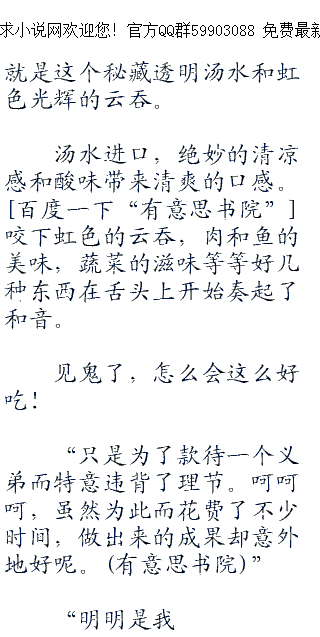 求小说网欢迎您！官方QQ群59903088 免费最新
就是这个秘藏透明汤水和虹
色光辉的云吞。
汤水进口，绝妙的清凉
感和酸味带来清爽的口感。
[百度一下“有意思书院”]
咬下虹色的云吞，肉和鱼的
美味，蔬菜的滋味等等好几
种东西在舌头上开始奏起了
和音。
见鬼了，怎么会这么好
吃！
“只是为了款待一个义
弟而特意违背了理节。呵呵
呵，虽然为此而花费了不少
时间，做出来的成果却意外
地好呢。(有意思书院)”
“明明是我